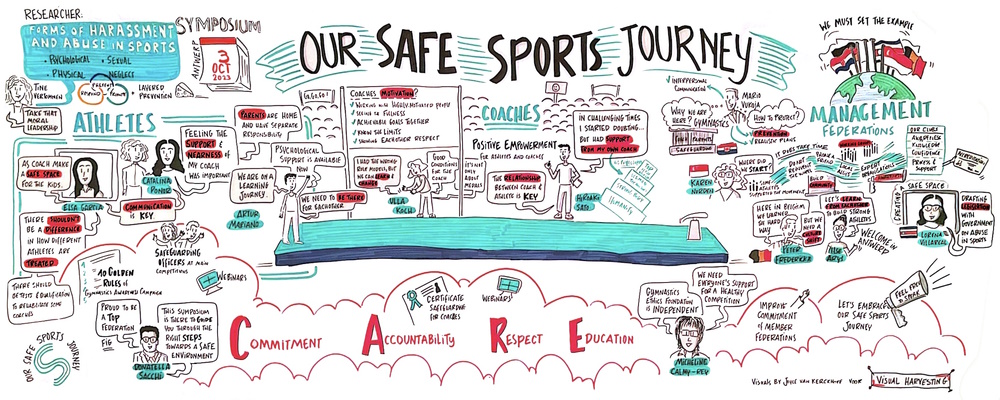 RESEARCHER:
FORMS OF HARASSMENT
AND ABUSE IN SPORTS
• PSYCHOLOGICAL
• SEXUAL
• PHYSICAL
• NEGLECT
TINE
VERTOMMEN
+ LAYERED
PREVENTION
TAKE THAT
MORAL
LEADERSHIP
SYMPOSIUM
ANTWERP
3
OCT
2023
OUR SAFE SPORTS JOURNEY
ATHLETES
AS COACH MAKE
A SAFE SPACE
FOR THE KIDS.
ELSA GARCIA
CATALINA
PONOR
FEELING THE
SUPPORT &
NEARNESS OF
MY COACH
WAS IMPORTANT
COMMUNICATION
IS KEY
THERE SHOULDN'T
BE A DIFFERENCE
IN HOW DIFFERENT
ATHLETES ARE
TREATED
PARENTS ARE HOME
AND HAVE SEPARATE
RESPONSIBILITY
GO, GO, GO!
PSYCHOLOGICAL
SUPPORT IS AVAILABLE
NOW
WE ARE ON A
LEARNING
JOURNEY.
WE NEED TO BE THERE
FOR EACHOTHER
ARTUR
MARIANO
COACHES MOTIVATION
✓ WORKING WITH HIGHLY-MOTIVATED PEOPLE
✓ ACHIEVING GOALS TOGETHER
✓ KNOW THE LIMITS
✓ SHOWING EACHOTHER RESPECT
I HAD THE WRONG
ROLE MODELS, BUT
YOU CAN LEARN &
CHANGE
ULLA
KOCH
GOOD
CONDITIONS
FOR THE
IT'S NOT
ONLY
ABOUT
MEDALS
COACHES
POSITIVE EMPOWERMENT
FOR ATHLETES AND COACHES
THE RELATIONSHIP
BETWEEN COACH &
ATHLETE IS KEY
IN CHALLENGING TIMES
I STARTED DOUBTING...
BUT HAD SUPPORT
FROM MY OWN COACH
HIROAKI
SATO
HUMANITY
✓ INTERPERSONAL
COMMUNICATION
MARIO
VUKOJA
WHY WE ARE
HERE? GYMNASTICS
PARENTS
SAFEGUARDING
HOW TO PROTECT?
✓ PREVENTION
✓ REALISTIC PLANS
WE MUST SET THE EXAMPLE
MANAGEMENT
FEDERATIONS
KAREN
NORDEN
WHERE DID
WE START
IT TAKES TIME
BUILD
COMMUNITY
LET'S LEARN
FROM EACHOTHER
TO BUILD STRONG
ATHLETES
HERE IN BELGIUM
WE LEARNED
THE HARD
WAY
BUT WE
NEED A
CULTURE
SHIFT
PETER
FREDERICKX
ILSE
ARYS
WELCOME IN
ANTWERP
SAFE SPACE
CREATING
DRAFTING
LEGISLATION
WITH
GOVERNMENT
ON ABUSE
IN SPORTS
LORENA
VILLAREAL
SAFEGUARDING
OFFICERS AT MAIN
COMPETITIONS
10 GOLDEN
RULES OF
GYMNASTICS AWARENESS CAMPAIGN
WEBINARS
PROUD TO BE
A TOP
FEDERATION
FIG
THIS SYMPOSIUM
IS THERE TO GUIDE
YOU THROUGH THE
RIGHT STEPS
TOWARDS A SAFE
ENVIRONMENT
DONATELLA
SACCHI
OUR SAFE SPORTS JOURNEY
CERTIFICATE
SAFEGUARDING
FOR COACHES
WEBINARS
COMMITMENT
ACCOUNTABILITY
RESPECT
EDUCATION
GYMNASTICS
ETHICS FOUNDATION
IS INDEPENDENT
WE NEED
EVERYONE'S SUPPORT
FOR A HEALTHY
COMPETITION
MICHELINE
CALMY-REY
IMPROVE
COMMITMENT
OF MEMBER
FEDERATIONS
LET'S EMBRACE
OUR SAFE SPORTS
JOURNEY
FEEL FREE
TO SPEAK
VISUALS BY JOYCE VAN KERCKHOVE VOOR
VISUAL HARVESTING